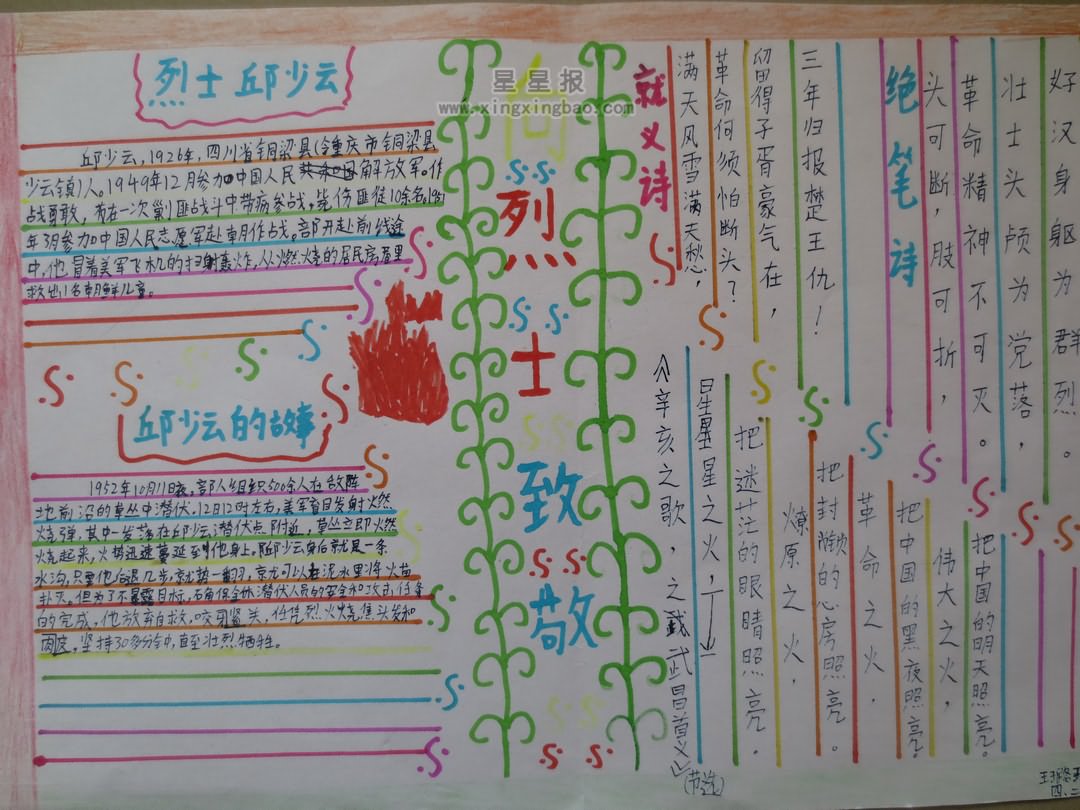 星星报
www.xingxingbao.com
向
烈
士
致
敬
烈士邱少云
邱少云,1926年,四川省铜梁县(今重庆市铜梁县
少云镇)人。1949年12月参加中国人民解放军。作
战勇敢,曾在一次剿匪战斗中带病参战,毙伤匪徒10余名。1951
年3月参加中国人民志愿军赴朝作战。部开赴前线途
中,他冒着美军飞机的扫射轰炸,从燃烧的居民房屋里
救出1名朝鲜儿童。
邱少云的故事
1952年10月11日夜,部人组织500余人在敌阵
地前沿的草丛中潜伏。12日12时左右,美军盲目发射燃
烧弹,其中一发落在邱少云潜伏点附近,草丛立即燃
烧起来,火势迅速蔓延到他身上。邱少云身后就是一条
水沟,只要他后退几步,就势一翻,就可以在泥水里将火苗
扑灭。但为了不暴露目标,确保全体潜伏人员的安全和次的任务
的完成,他放弃自救,咬紧关,任凭烈火烧焦头发和
肉皮,坚持30多分钟,直至壮烈牺牲。
就义诗
满天风雪满天愁,
革命何须怕断头?
留得子胥豪气在,
三年归报楚王仇!
绝笔诗
头可断,肢可折,
革命精神不可灭。
壮士头颅为党落,
好汉身躯为群烈。
《辛亥之歌,之武昌首义》
(节选)
星星之火,
把迷茫的眼睛照亮。
燎原之火,
把封锁的心房照亮。
革命之火,
把中国的黑夜照亮。
伟大之火,
把中国的明天照亮。
四、二